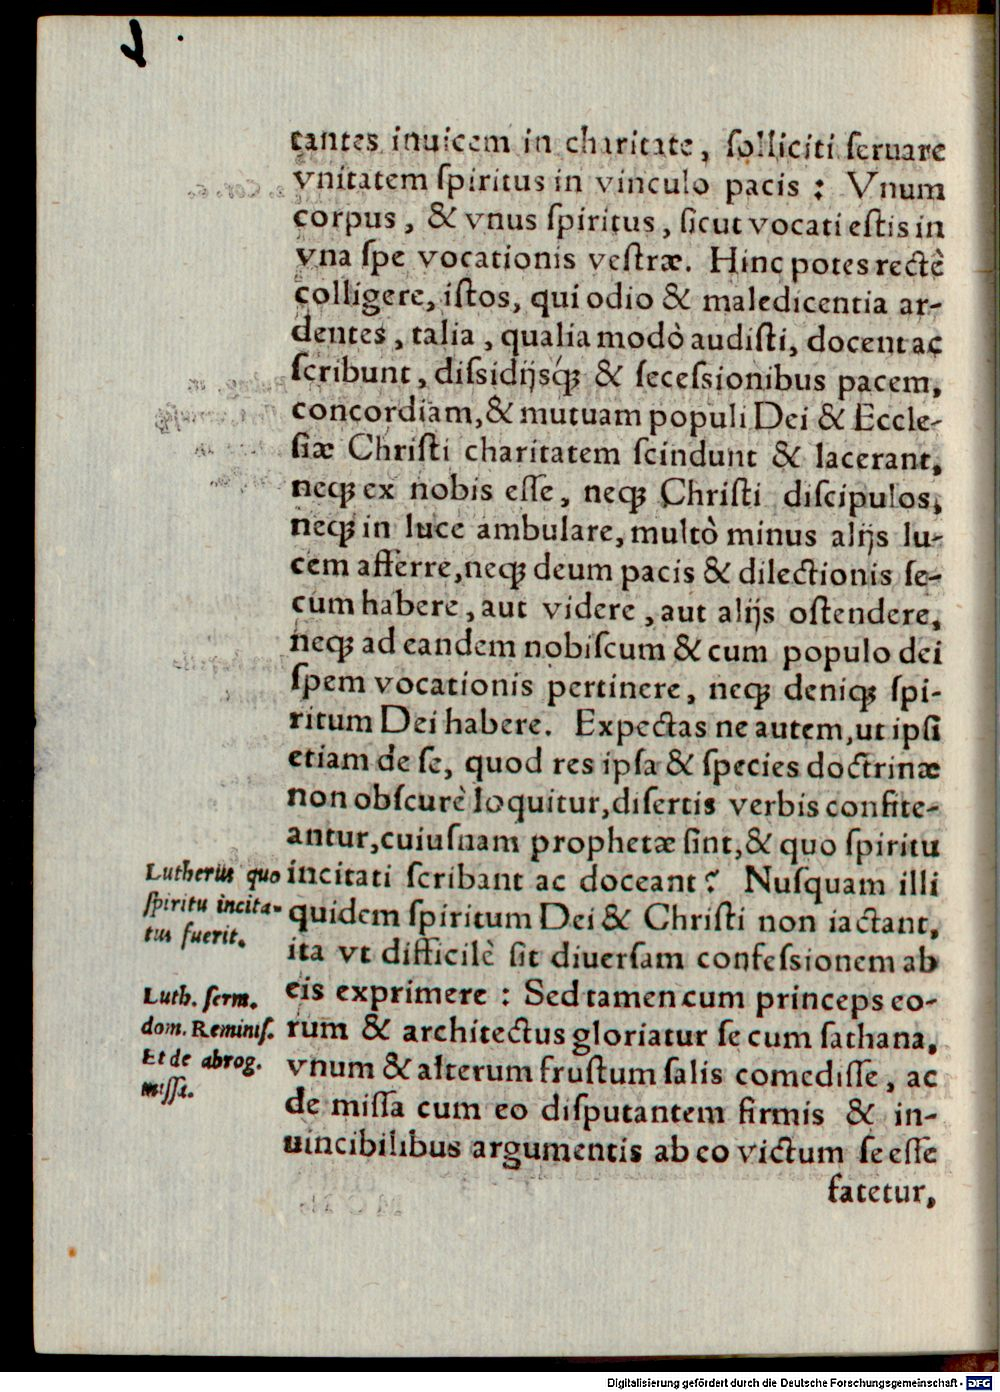 tantes inuicem in charitate, ſolliciti ſeruare
vnitatem ſpiritus in vinculo pacis : Vnum
corpus, & vnus ſpiritus, ſicut vocati eſtis in
vna ſpe vocationis veſtræ. Hinc potes rectè
colligere, iſtos, qui odio & maledicentia ar-
dentes, talia, qualia modò audiſti, docent ac
ſcribunt, diſsidijsq́; & ſeceſsionibus pacem,
concordiam, & mutuam populi Dei & Eccle-
ſiæ Chriſti charitatem ſcindunt & lacerant,
neq; ex nobis eſſe, neq; Chriſti diſcipulos,
neq; in luce ambulare, multò minus alijs lu-
cem afferre, neq; deum pacis & dilectionis ſe-
cum habere, aut videre, aut alijs oſtendere,
neq; ad eandem nobiſcum & cum populo dei
ſpem vocationis pertinere, neq; deniq; ſpi-
ritum Dei habere. Expectas ne autem, ut ipſi
etiam de ſe, quod res ipſa & ſpecies doctrinæ
non obſcurè loquitur, diſertis verbis confite-
antur, cuiuſnam prophetæ ſint, & quo ſpiritu
incitati ſcribant ac doceant? Nuſquam illi
quidem ſpiritum Dei & Chriſti non iactant,
ita vt difficilè ſit diuerſam confeſsionem ab
eis exprimere : Sed tamen cum princeps eo-
rum & architectus gloriatur ſe cum ſathana,
vnum & alterum fruſtum ſalis comediſſe, ac
de miſſa cum eo diſputantem firmis & in-
uincibilibus argumentis ab eo victum ſe eſſe
fatetur,
Lutherus quo
ſpiritu incita-
tus fuerit.
Luth. ſerm.
dom. Reminiſ.
Et de abrog.
miſſa.
Digitalisierung gefördert durch die Deutsche Forschungsgemeinschaft - DFG